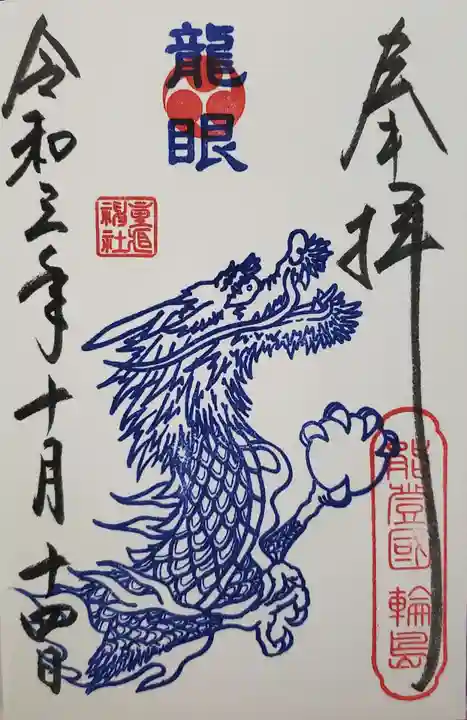 奉拝
能登國 輪島
龍眼
重蔵
神社
令和三年十月十四日